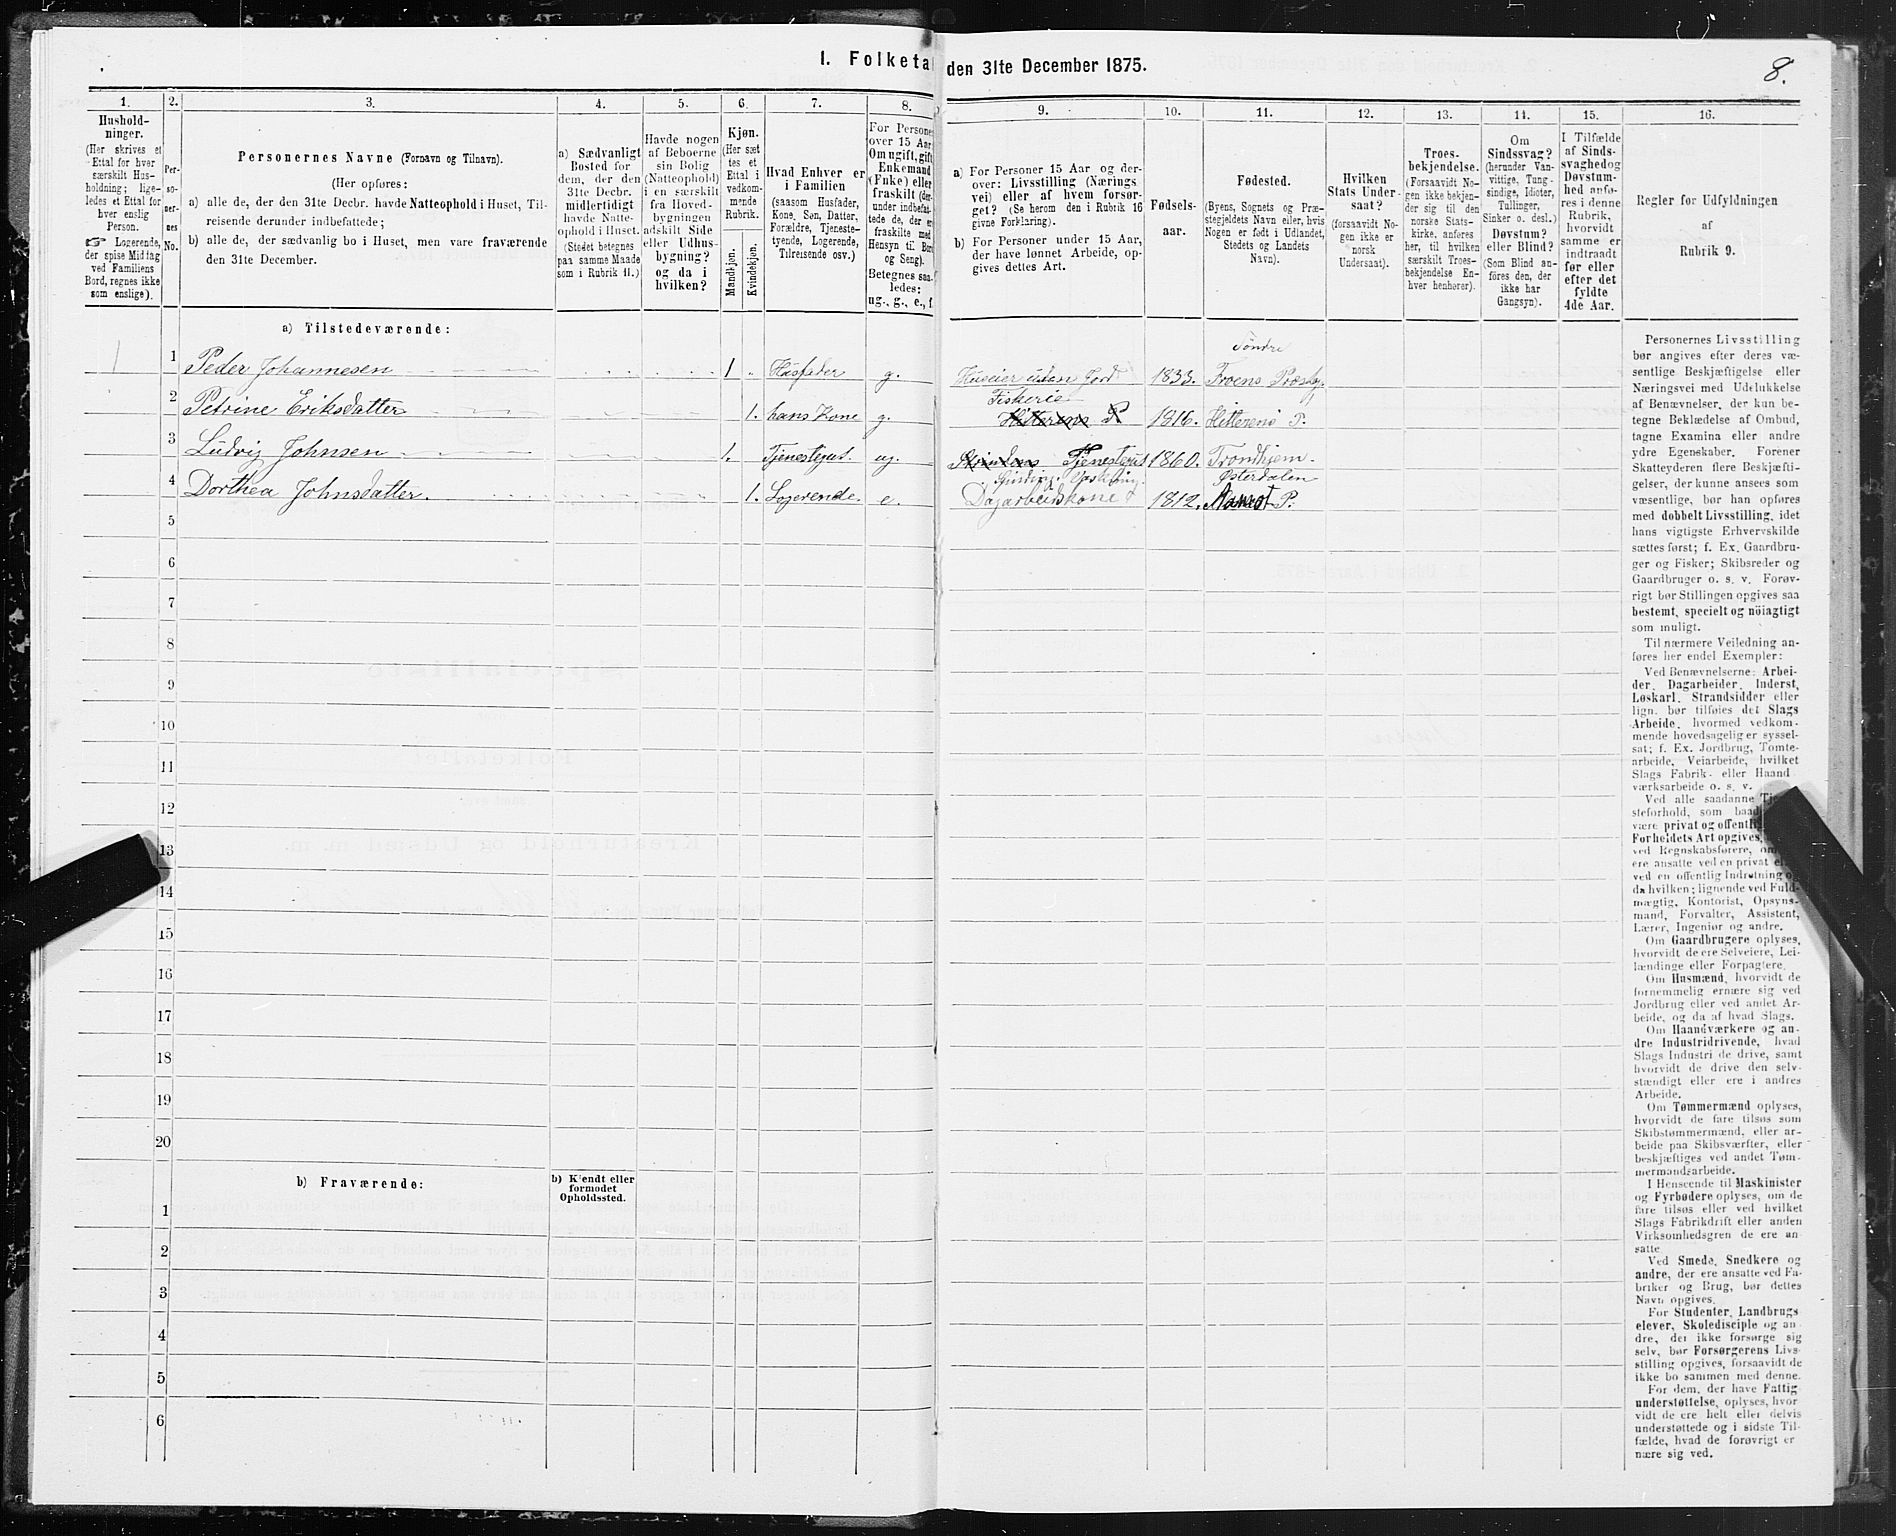 I. Folketal den 31te December 1875.
8.
1. 2. 3. 4. 5. 6. 7. 8. 9. 10. 11. 12. 13. 14. 15. 16.
Hushold-
ninger.
(Her skrives et
Ettal for hver
særskilt Hus-
holdning; lige-
ledes et Ettal for
hver enslig
Person.
☞ Logerende,
der spise Middag
ved Familiens
Bord, regnes ikke
som enslige).
Per-
so-
ner-
nes
No.
Personernes Navne (Fornavn og Tilnavn).
(Her opføres:
a) alle de, der den 31te Decbr. havde Natteophold i Huset, Til-
reisende derunder indbefattede;
b) alle de, der sædvanlig bo i Huset, men vare fraværende
den 31te December.
a) Sædvanligt
Bosted for
dem, der den
31te Decbr.
midlertidigt
havde Natte-
ophold i Huset.
(Stedet betegnes
paa samme Maade
som i Rubrik 11.)
Havde nogen
af Beboerne
sin Bolig
(Natteophold)
i en særskilt
fra Hoved-
bygningen
adskilt Side
eller Udhus-
bygning?
og da i
hvilken?
Kjøn.
(Her sæt
tes et
Ettal i
vedkom-
mende
Rubrik.
Mandkjøn.
Kvindekjøn.
Hvad Enhver er
i Familien
(saasom Husfader,
Kone, Søn, Datter,
Forældre, Tjeneste-
tyende, Logerende,
Tilreisende osv.)
For Personer
over 15 Aar
Om ugift, gift
Enkemand
(Enke) eller
fraskilt (der-
under indbefat-
tede de, der er
fraskilte med
Hensyn til Bord
og Seng).
Betegnes saa-
ledes:
ug., g., e., f.
a) For Personer 15 Aar og der-
over: Livsstilling (Nærings
vei) eller af hvem forsør-
get? (Se herom den i Rubrik 16
givne Forklaring).
b) For Personer under 15 Aar,
der have lønnet Arbeide, op-
gives dettes Art.
Fødsels-
aar.
Fødested.
(Byens, Sognets og Præ-
stegjeldets Navn eller, hvis
Nogen er født i Udlandet,
Stedets og Landets
Navn).
Hvilken
Stats Under-
saat?
(forsaavidt No-
gen ikke er
norsk
Undersaat).
Troes-
bekjendelse.
(Forsaavidt No-
gen ikke bekjen-
der sig til den
norske Stats-
kirke, anføres
her, til hvilken
særskilt Troes-
bekjendelse En-
hver henhører).
Om
Sindssvag?
(herunder Van-
vittige, Tung-
sindige, Idioter,
Tullinger,
Sinker o. desl.)
Døvstum?
eller Blind?
(Som Blind an-
føres den, der
ikke har
Gangsyn).
I Tilfælde
af Sinds-
svaghed og
Døvstum-
hed anfø-
res i denne
Rubrik,
hvorvidt
samme er
indtraadt
før eller
efter det
fyldte
4de Aar.
Regler for Udfyldningen
af
Rubrik 9.
a) Tilstedeværende:
1 1 Peder Johannesen 1 Husfader g. Huseier uden Jord Fiskerie 1833. Søndre Froens Præstg.
2 Petrine Eriksdatter 1. hans Kone g. Hitterens P 1816. Hitterens P.
3 Ludvig Johnsen 1. Tjenestegut. ug. Tjenestegut 1860. Trondhjem
4 Dorthea Johnsdatter. 1. Logerende. e. Dagarbeidskone 1812. Østerdalen Aamot P.
5
6
7
8
9
10
11
12
13
14
15
16
17
18
19
20
b) Fraværende:
b) Kjendt eller
formodet
Opholdssted.
1
2
3
4
5
6
Personernes Livsstilling
bør angives efter deres væ-
sentlige Beskjæftigelse eller
Næringsvei med Udelukkelse
af Benævnelser, der kun be-
tegne Beklædelse af Ombud,
tagne Examina eller andre
ydre Egenskaber. Forener
Skatteyderen flere Beskjæfti-
gelser, der kunne ansees som
væsentlige, bør han opføres
med dobbelt Livsstilling, idet
hans vigtigste Erhvervskilde
sættes først; f. Ex. Gaardbru-
ger og Fisker; Skibsreder og
Gaardbruger o. s. v. Forøv-
rigt bør Stillingen opgives saa
bestemt, specielt og nöiagtigt
som muligt.
Til nærmere Veiledning an-
føres her endel Exempler:
Ved Benævnelserne: Arbei-
der, Dagarbeider, Inderst,
Løskarl, Strandsidder eller
lign. bør tilføies det Slags
Arbeide, hvormed vedkom-
mende hovedsagelig er syssel-
sat; f. Ex. Jordbrug, Tomte-
arbeide, Veiarbeide, hvilket
Slags Fabrik- eller Haand
værksarbeide o. s. v.
Ved alle saadanne
steforhold, som
være privat og
Forholdets Art opgives,
ved Regnskabsførere,
ere ansatte ved en privat
ved en offentlig Indretning
da hvilken; lignende ved Fuld-
mægtig, Kontorist, Opsyns-
mand, Forvalter, Assistent,
Lærer, Ingeniør og andre.
Om Gaardbrugere oplyses,
hvorvidt de ere Selveiere, Lei-
lændinge eller Forpagtere.
Om Husmænd, hvorvidt de
fornemmelig ernære sig ved
Jordbrug eller ved andet Ar-
beide, og da af hvad Slags.
Om Haandværkere og an-
dre Industridrivende, hvad
Slags Industri de drive, samt
hvorvidt de drive den selv-
stændigt eller ere i andres
Arbeide.
Om Tømmermænd oplyses,
hvorvidt de fare tilsøs som
Skibstømmermænd, eller ar-
beide paa Skibsværfter, eller
beskjæftiges ved andet Tøm-
mermandsarbeide.
I Henseende til Maskinister
og Fyrbødere oplyses, om de
fare tilsøs eller ved hvilket
Slags Fabrikdrift eller anden
Virksomhedsgren de ere an-
satte
Ved Smede, Snedkere og
andre, der ere ansatte ved Fa-
briker og Brug, bør dettes
Navn opgives.
For Studenter, Landbrugs
elever, Skoledisciple og an-
dre, der ikke forsørge sig
selv, bør Forsørgerens Livs-
stilling opgives, forsaavidt de
ikke bo sammen med denne.
For dem, der have Fattig
understøttelse, oplyses, hvor
vidt de ere helt eller delvis
understøttede og i sidste Til-
fælde, hvad de forøvrigt er
nære sig ved.